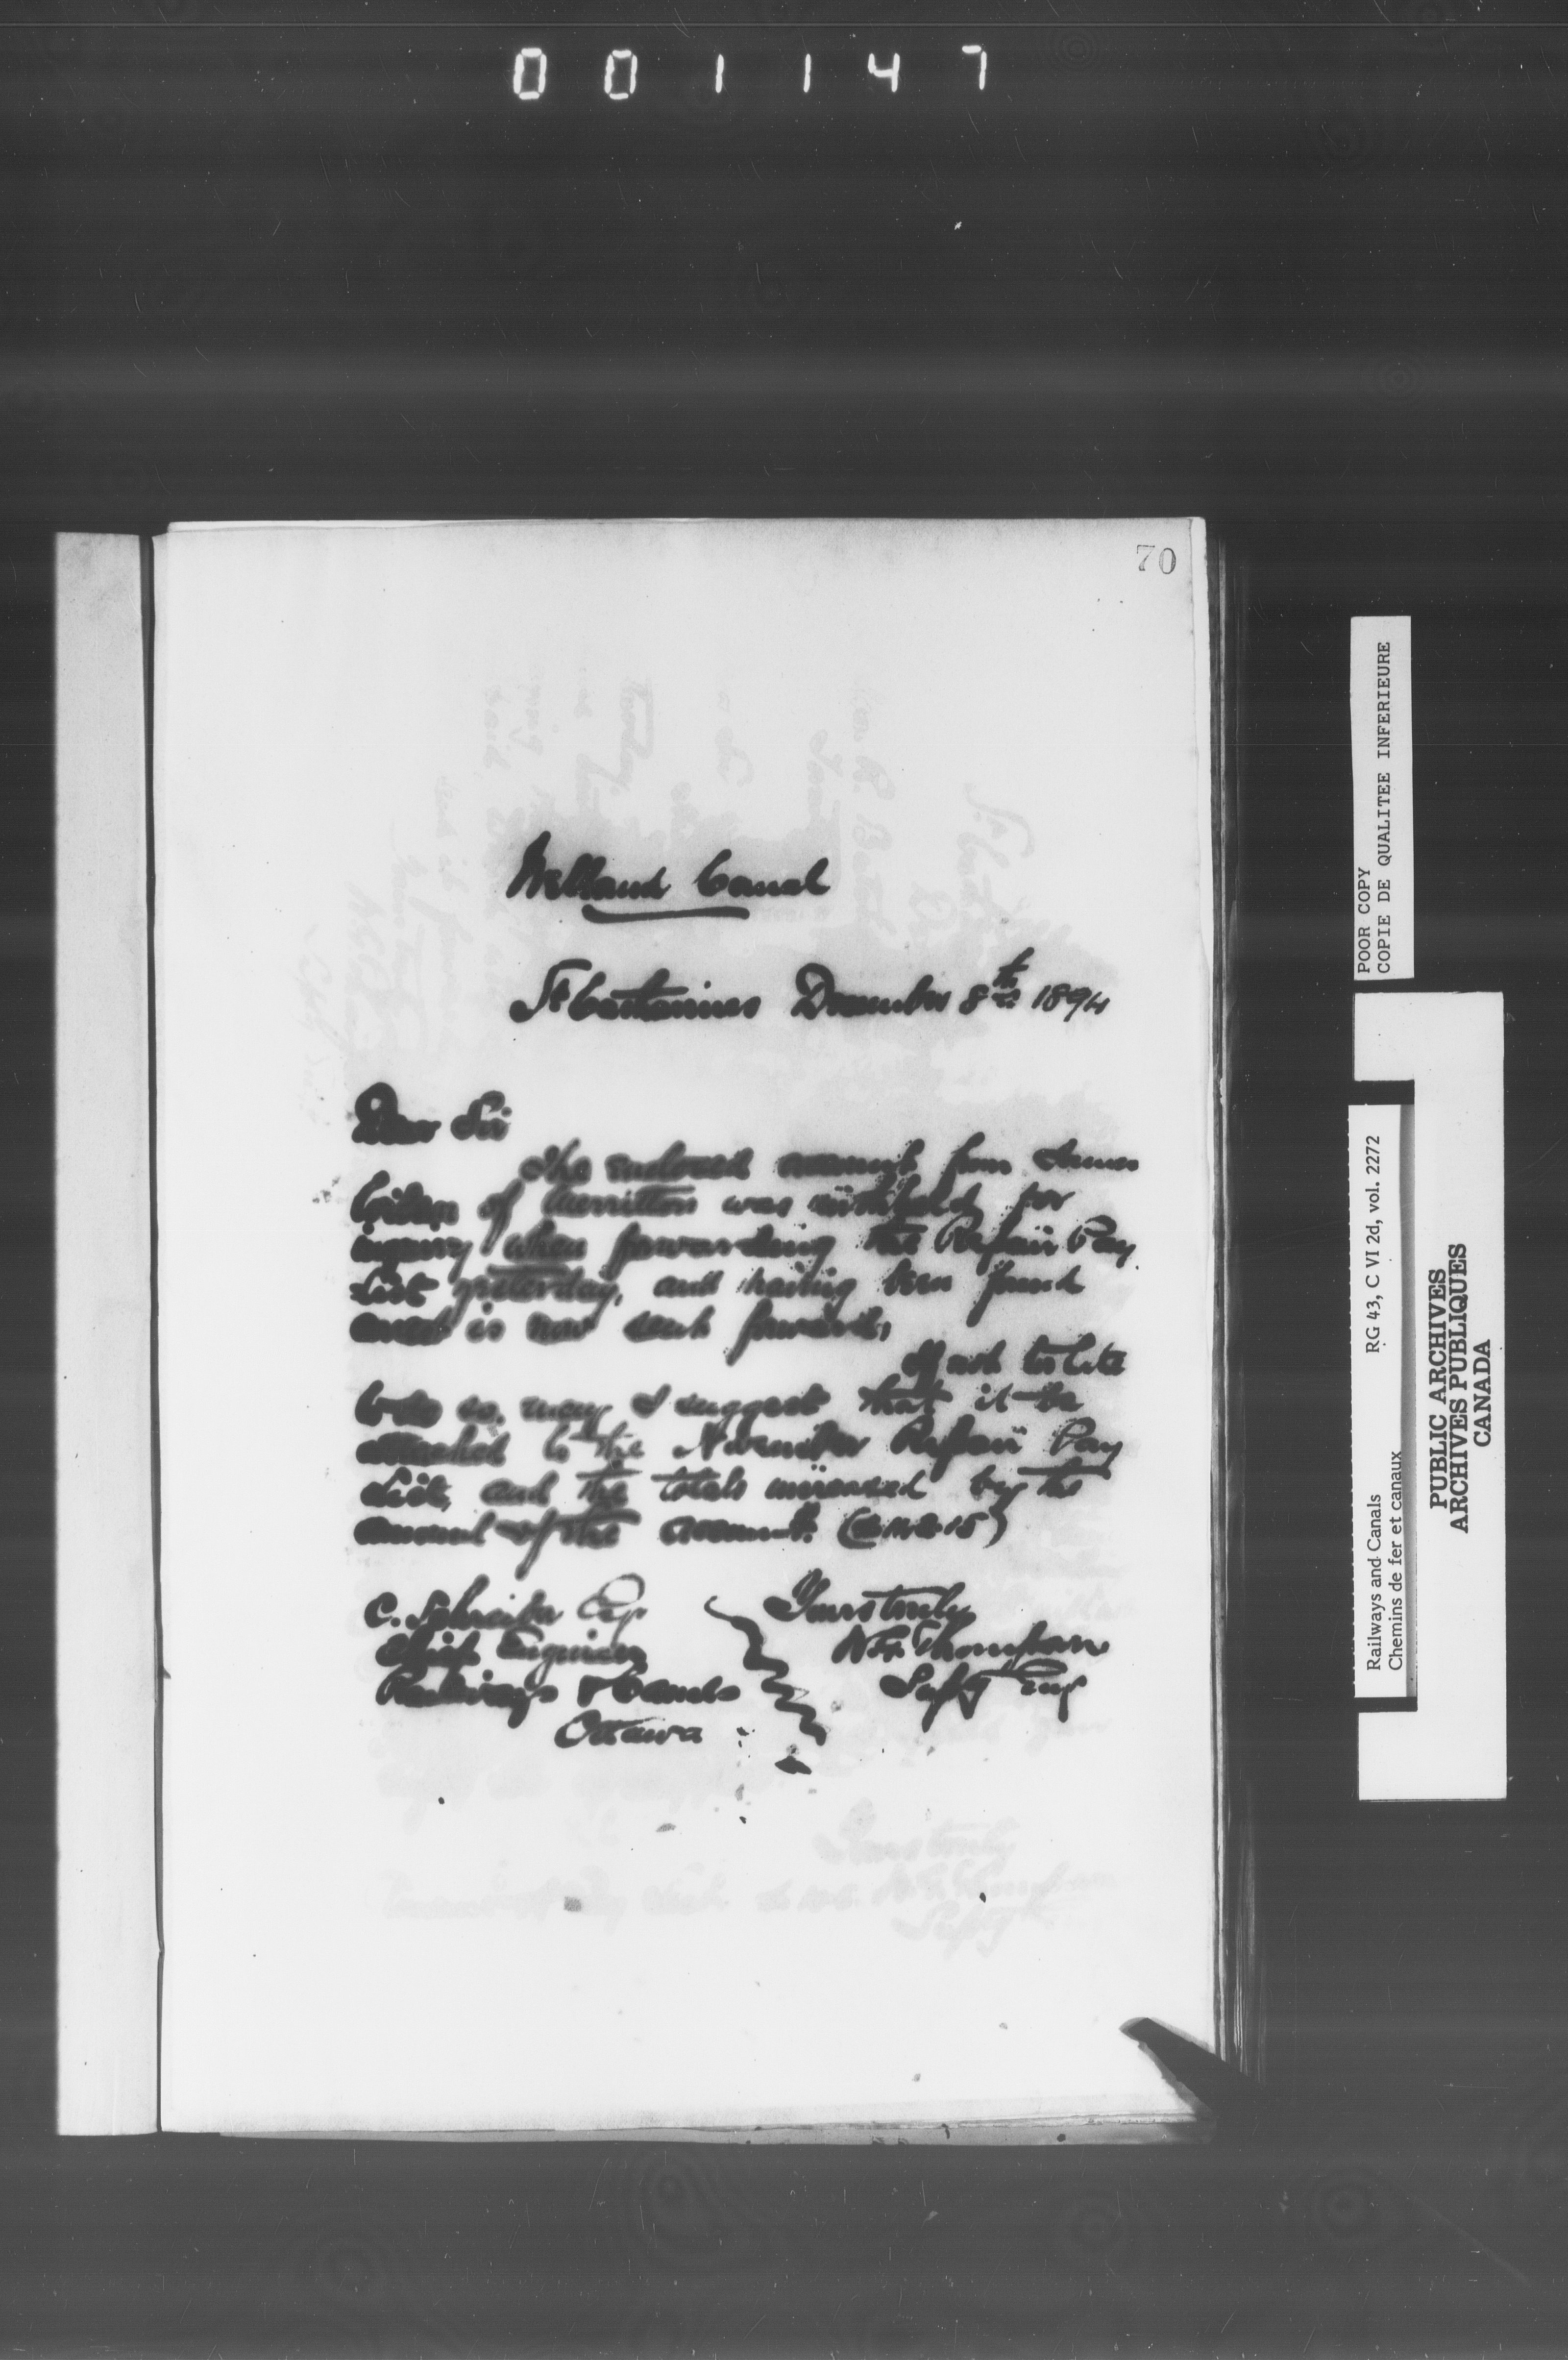 001147
70
Welland Canal
St Catharines December 8th 1894
Dear Sir
The enclosed account from James
of Merritton was withheld for
inquiry when forwarding the Repair Pay
List yesterday, and having been found
correct is now sent forward,
If not too late
to do so, may I suggest that it be
attached to the November Repair Pay
List, and the totals increased by the
amount of the account.
C. Schreiber Esq
Chief Engineer
Railways & Canals
Ottawa
Yours truly
W.G. Thompson
Suptg Eng
POOR COPY
COPIE DE QUALITEE INFERIEURE
Railways and Canals RG 43, C VI 2d, vol. 2272
Chemins de fer et canaux
PUBLIC ARCHIVES
ARCHIVES PUBLIQUES
CANADA